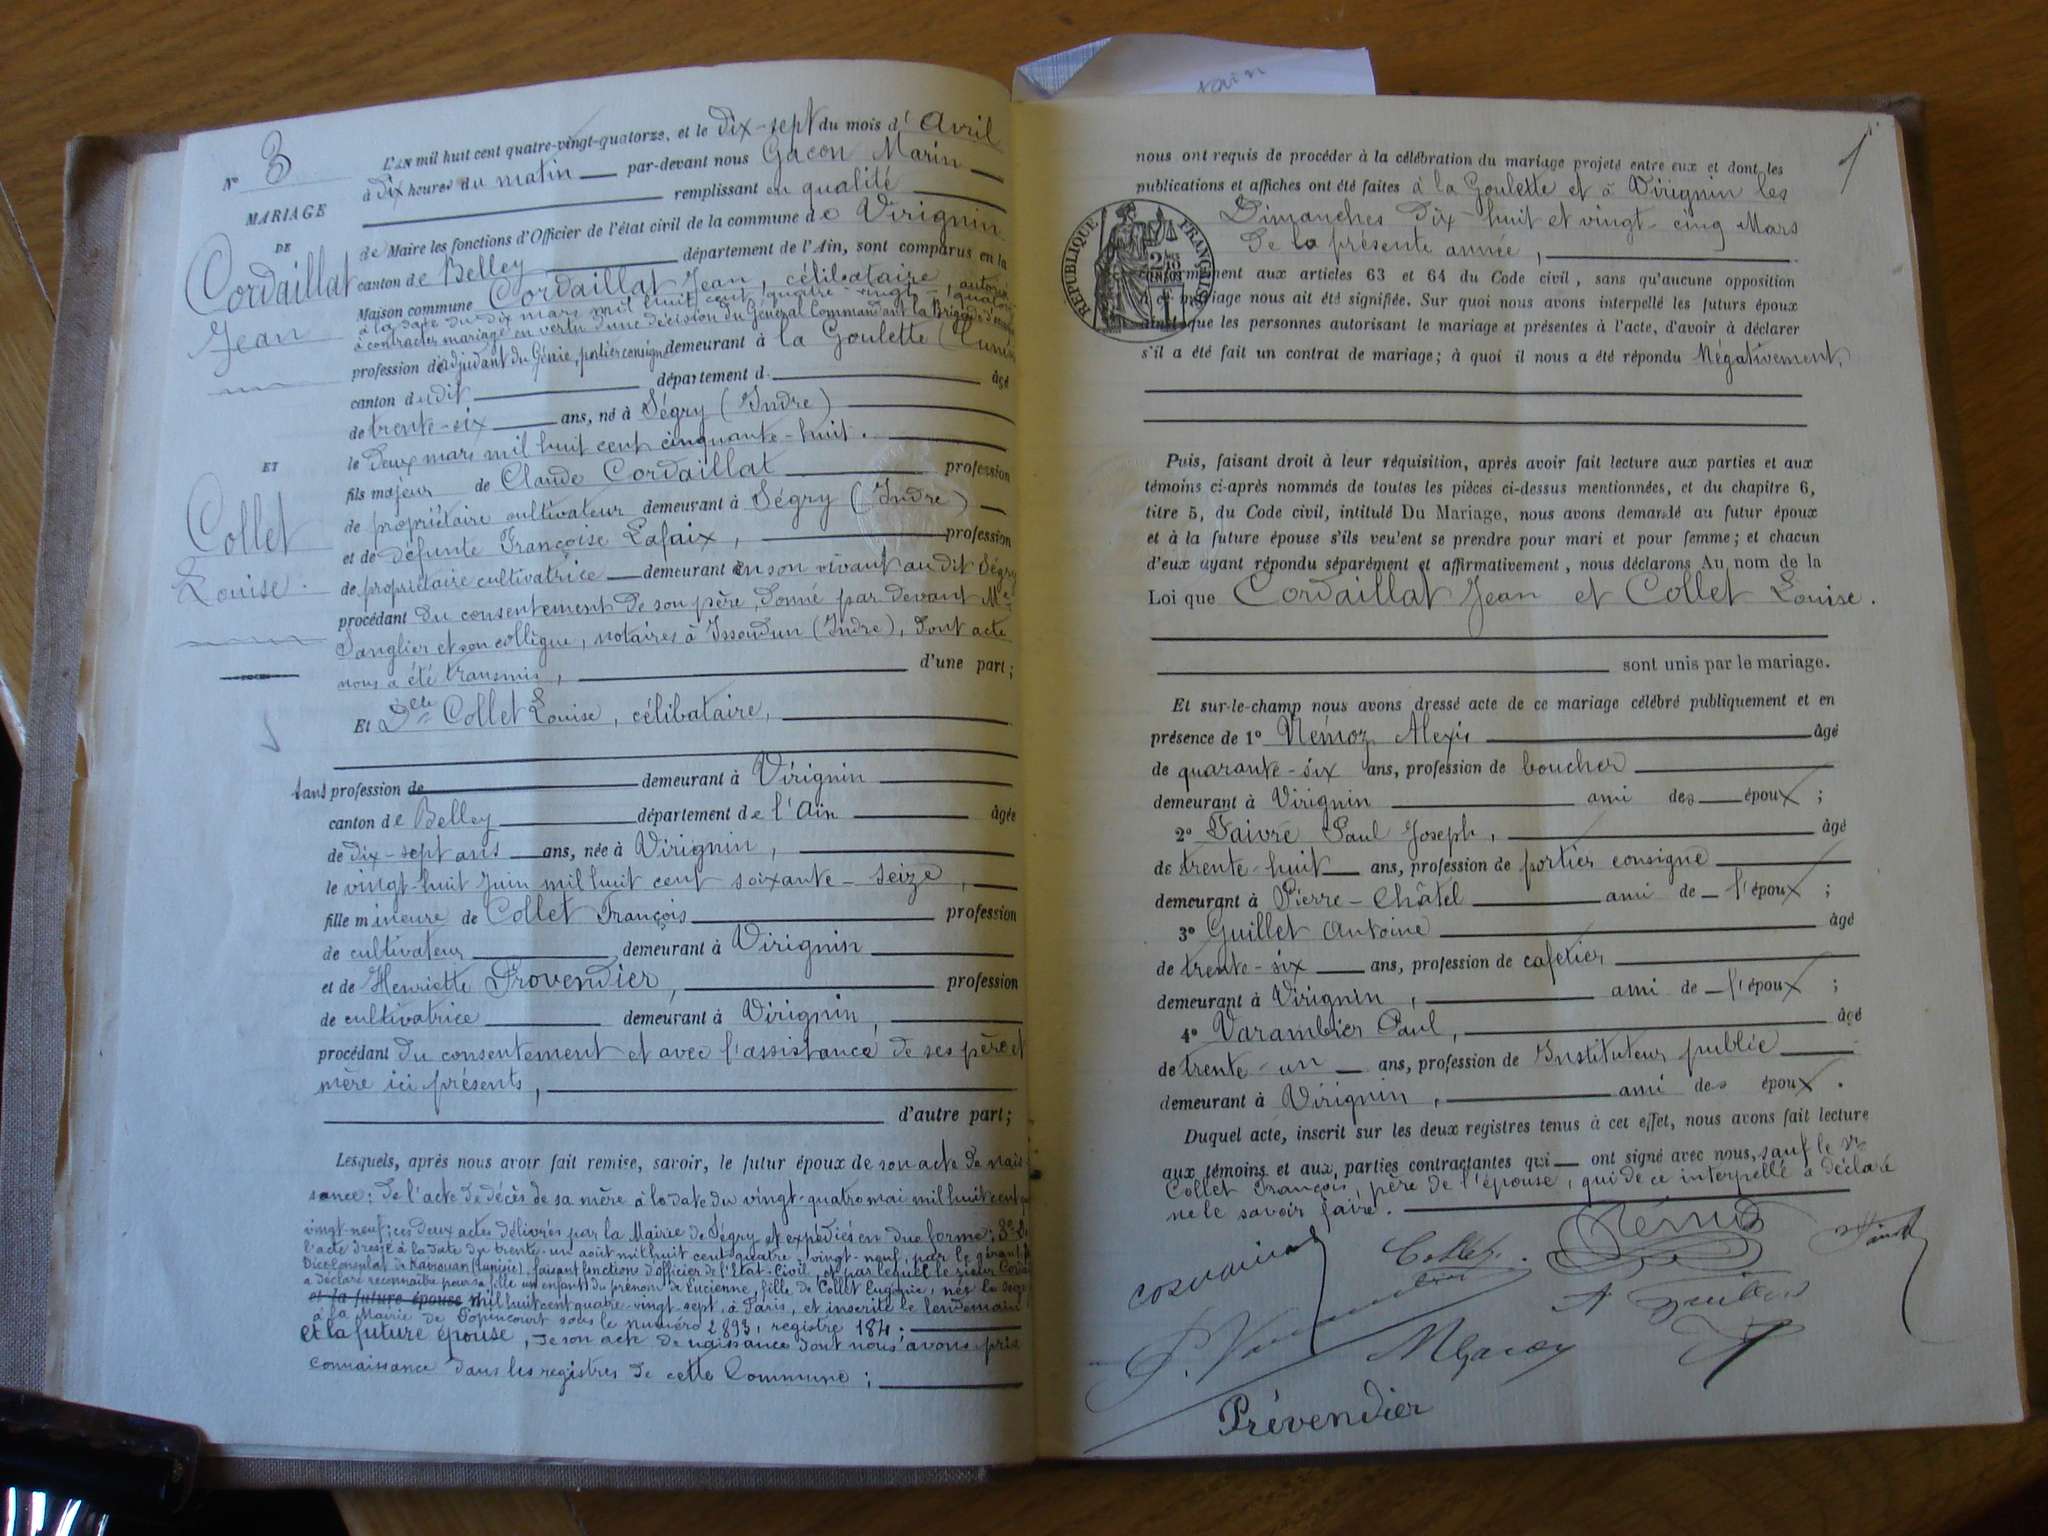 N° 3
MARIAGE
DE
Cordaillat
Jean
ET
Collet
Louise.
L'AN mil huit cent quatre-vingt-quatorze, et le Dix-sept du mois d'Avril
à Dix heures du matin par-devant nous Gacon Marin
remplissant en qualité
de Maire les fonctions d'Officier de l'état civil de la commune de Virignin
canton de Belley département de l'Ain, sont comparus en la
Maison commune Cordaillat Jean, célibataire, autorisé
à la date du dix mars mil huit cent quatre-vingt-quatorze
à contracter mariage en vertu d'une décision du Général Commandant la Brigade
profession d'adjudant du Génie, portier consigne demeurant à la Goulette (Tunisie
canton dudit département d. âgé
de trente-six ans, né à Ségry (Indre)
le Deux mars mil huit cent cinquante-huit.
fils majeur de Claude Cordaillat profession
de propriétaire cultivateur demeurant à Ségry (Indre)
et de défunte Françoise Lafaix, profession
de propriétaire cultivatrice demeurant en son vivant au dit Ségry
procédant du consentement de son père, donné par devant Me
Sanglier et son collègue, notaires à Issoudun (Indre), dont acte
nous a été transmis, d'une part;
Et Delle Collet Louise, célibataire,
sans profession de demeurant à Virignin
canton de Belley département de l'Ain âgée
de dix-sept ans ans, née à Virignin,
le vingt-huit Juin mil huit cent soixante-seize,
fille mineure de Collet François profession
de cultivateur demeurant à Virignin
et de Henriette Provendier, profession
de cultivatrice demeurant à Virignin,
procédant du consentement et avec l'assistance de ses père et
mère ici présents,
d'autre part;
Lesquels, après nous avoir fait remise, savoir, le futur époux de son acte de nais
sance; de l'acte de décès de sa mère à la date du vingt-quatre mai mil huit cent
vingt-neuf; ces deux actes délivrés par la Mairie de Ségry et expédiés en due forme; 3° De
l'acte dressé à la date du trente-un août mil huit cent quatre-vingt-neuf, par le gérant
Vice Consulat de Kairouan (Tunisie), faisant fonctions d'officier de l'Etat-Civil, et par lequel le sieur
a déclaré reconnaître pour sa fille un enfant du prénom de Lucienne, fille de Collet Eugénie, née le
et la future épouse mil huit cent quatre-vingt-sept, à Paris, et inscrite le lendemain
à la Mairie de Popincourt sous le numéro 2893, registre 184;
et la future épouse, de son acte de naissance dont nous avons pris
connaissance dans les registres de cette Commune;
nous ont requis de procéder à la célébration du mariage projeté entre eux et dont les
publications et affiches ont été faites à la Goulette et à Virignin les
Dimanches dix-huit et vingt-cinq Mars
de la présente année,
RÉPUBLIQUE FRANÇAISE
conformément aux articles 63 et 64 du Code civil, sans qu'aucune opposition
à ce mariage nous ait été signifiée. Sur quoi nous avons interpellé les futurs époux
ainsi que les personnes autorisant le mariage et présentes à l'acte, d'avoir à déclarer
s'il a été fait un contrat de mariage; à quoi il nous a été répondu Négativement,
Puis, faisant droit à leur réquisition, après avoir fait lecture aux parties et aux
témoins ci-après nommés de toutes les pièces ci-dessus mentionnées, et du chapitre 6,
titre 5, du Code civil, intitulé Du Mariage, nous avons demandé au futur époux
et à la future épouse s'ils veulent se prendre pour mari et pour femme; et chacun
d'eux ayant répondu séparément et affirmativement, nous déclarons Au nom de la
Loi que Cordaillat Jean et Collet Louise.
sont unis par le mariage.
Et sur-le-champ nous avons dressé acte de ce mariage célébré publiquement et en
présence de 1° Némoz Alexis âgé
de quarante-six ans, profession de boucher
demeurant à Virignin ami des époux;
2° Faivre Paul Joseph, âgé
de trente-huit ans, profession de portier consigne
demeurant à Pierre-Châtel ami de l'époux;
3° Guillet Antoine âgé
de trente-six ans, profession de cafetier
demeurant à Virignin, ami de l'époux;
4° Varambier Paul, âgé
de trente-un ans, profession de Instituteur public
demeurant à Virignin, ami des époux.
Duquel acte, inscrit sur les deux registres tenus à cet effet, nous avons fait lecture
aux témoins et aux parties contractantes qui ont signé avec nous, sauf le Sr
Collet François, père de l'épouse, qui de ce interpellé a déclaré
ne le savoir faire.
Némoz
Collet
MGacon
Prévendier